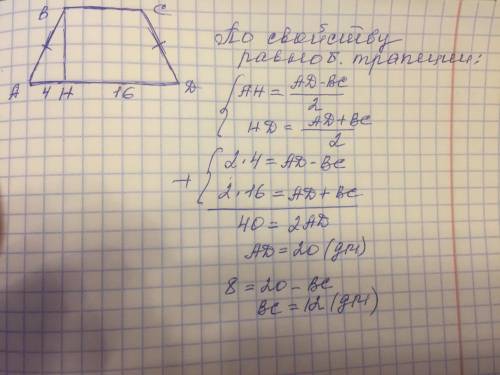 B C
A 4 H 16 D
По свойству
равноб. трапеции:
AH = AD-BC / 2
HD = AD+BC / 2
2·4 = AD-BC
+
2·16 = AD+BC
40 = 2AD
AD = 20 (дм)
8 = 20 - BC
BC = 12 (дм)